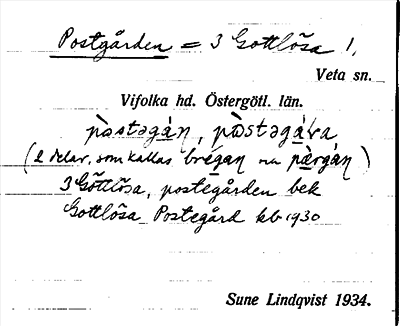 Postgården = 3 Gottlösa 1.
Veta sn.
Vifolka hd. Östergötl. län.
pòstəgán, pòstəgáva
(2 delar, som kallas brégan och pærgán)
3 Göttlösa, postegården bek
Gottlösa Postegård kb 1930
Sune Lindqvist 1934.